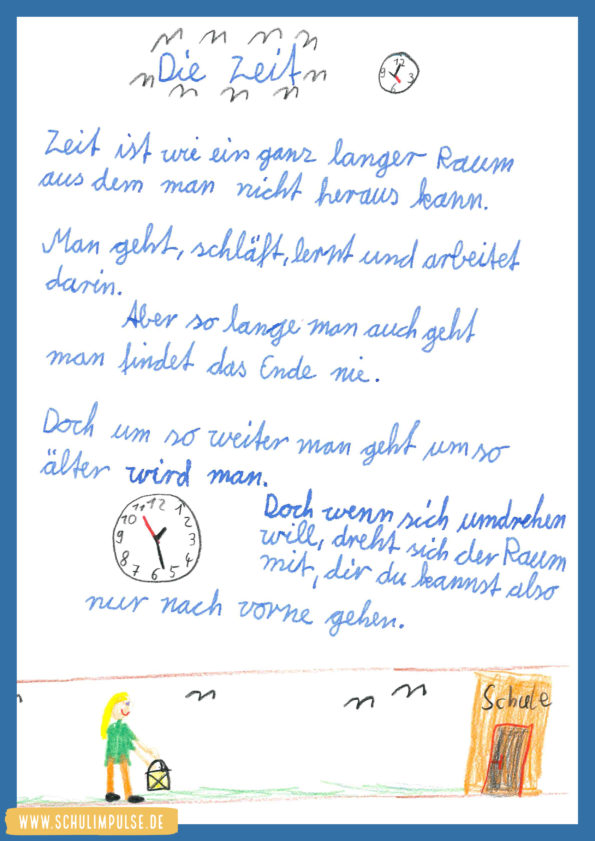 Die Zeit
12
9 3
6
Zeit ist wie ein ganz langer Raum
aus dem man nicht heraus kann.
Man geht, schläft, lernt und arbeitet
darin.
Aber so lange man auch geht
man findet das Ende nie.
Doch um so weiter man geht um so
älter wird man.
11 12 1
10 2
9 3
8 4
7 6 5
Doch wenn sich umdrehen
will, dreht sich der Raum
mit, dir du kannst also
nur nach vorne gehen.
Schule
WWW.SCHULIMPULSE.DE